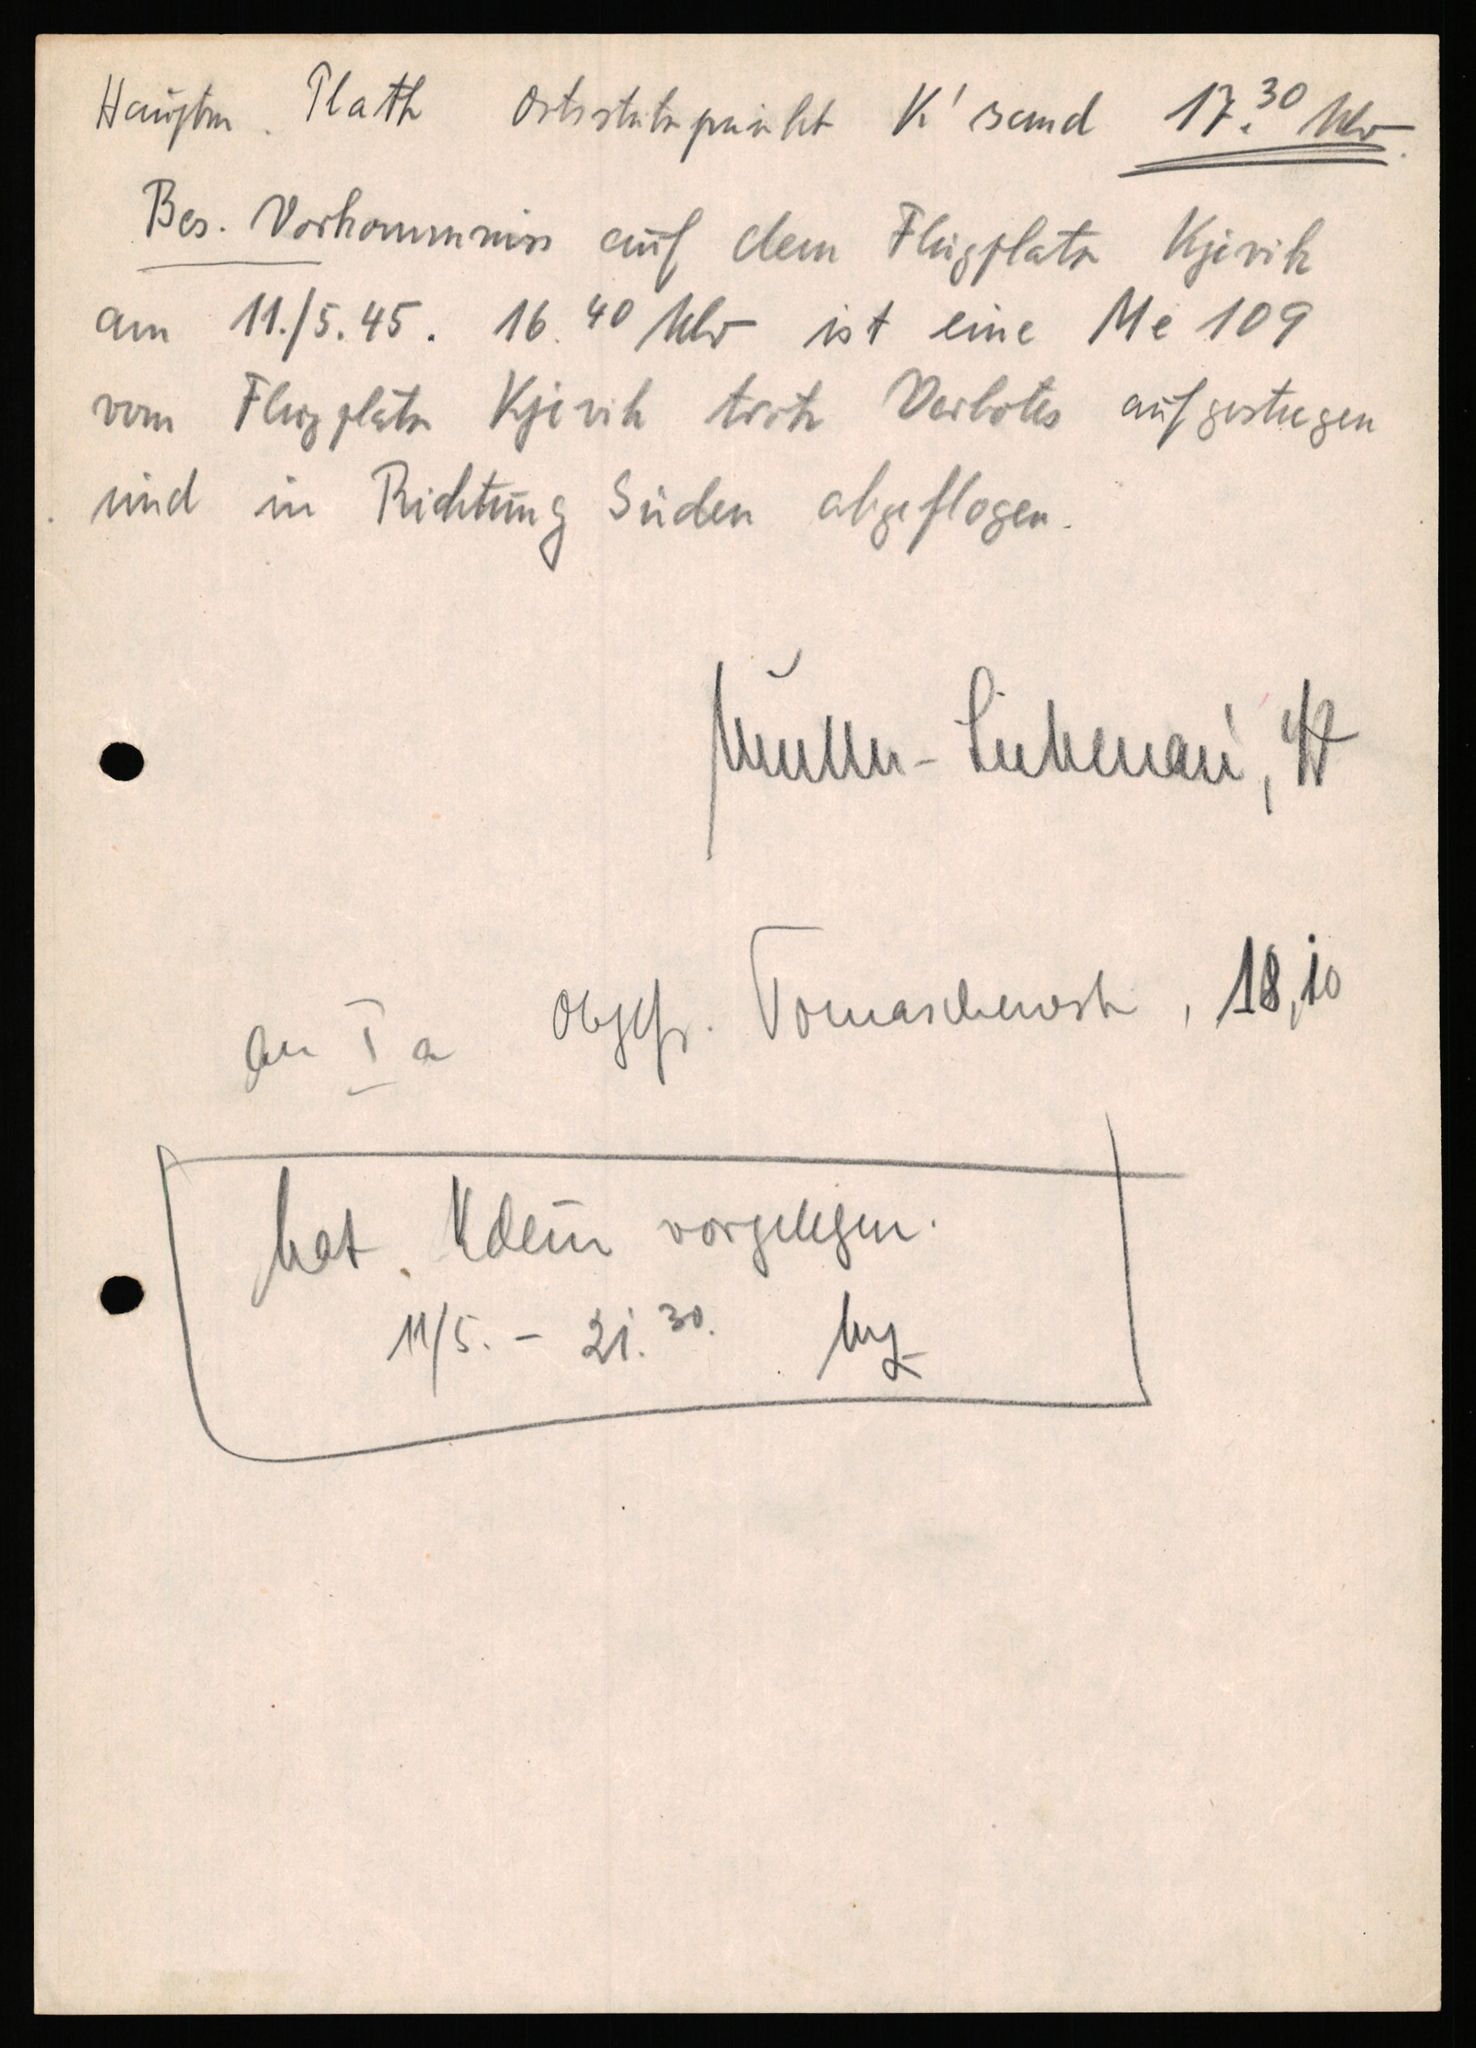 Hauptm. Plath Ortsstützpunkt K'sand 17.30 Uhr.
Bes. Vorkommnis auf dem Flugplatz Kjevik
am 11./5.45. 16.40 Uhr ist eine Me 109
vom Flugplatz Kjevik trotz Verbotes aufgestiegen
und in Richtung Süden abgeflogen.
Müller-Liebenau,
an Ia Obgefr. Tomaschewski, 18,10
hat Kdeur vorgelegen.
11/5. - 21.30.